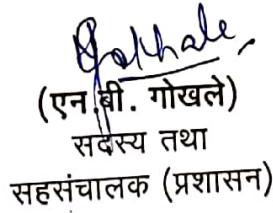 Gokhale
(एन.बी. गोखले)
सदस्य तथा
सहसंचालक (प्रशासन)